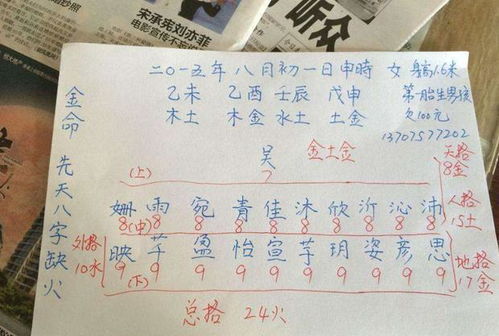 宋承宪刘亦菲
听众
二〇一五年八月初一日申時 女 身高1.6米
金命
乙未 乙酉 壬辰 戊申 第一胎生男孩
木土 木金 水土 土金 欠100元
13707577202
吴 金土金
7
(上)
天格
8金
先天八字缺火
姗 雨 宛 青 佳 沐 欣 沂 沁 沛
8 (中) 8 8 8 8 8 8 8 8 8
人格
15土
外格
10水
映 芓 盈 怡 宣 芓 玥 姿 彦 思
9 9 9 9 9 9 9 9 9 9
(下)
地格
17金
总格 24火